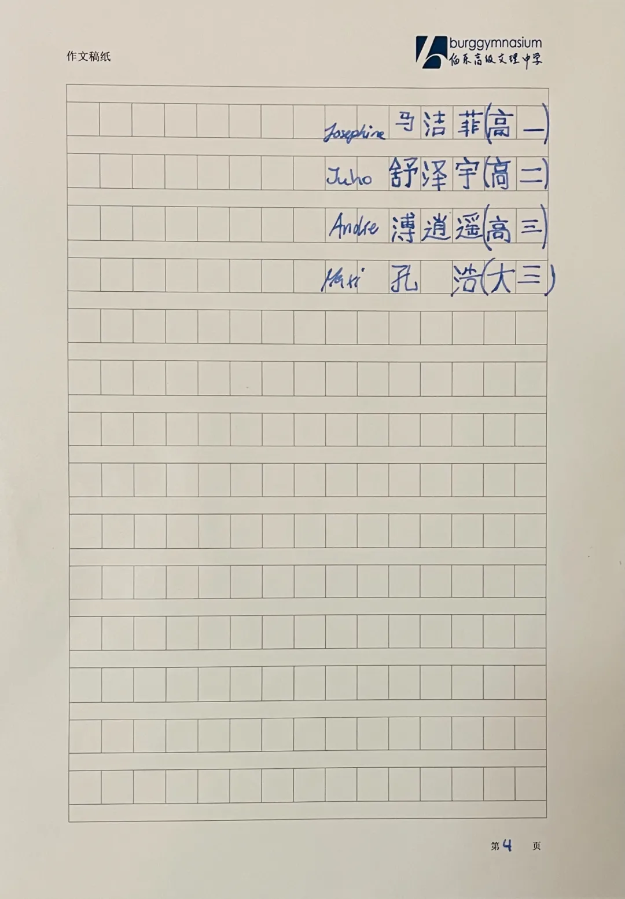 作文稿纸
burggymnasium
伯乐高级文理中学
Josephine 马洁菲(高一)
Juho 舒泽宇(高二)
Andre 溥逍遥(高三)
Maxi 孔 浩(大三)
第4页